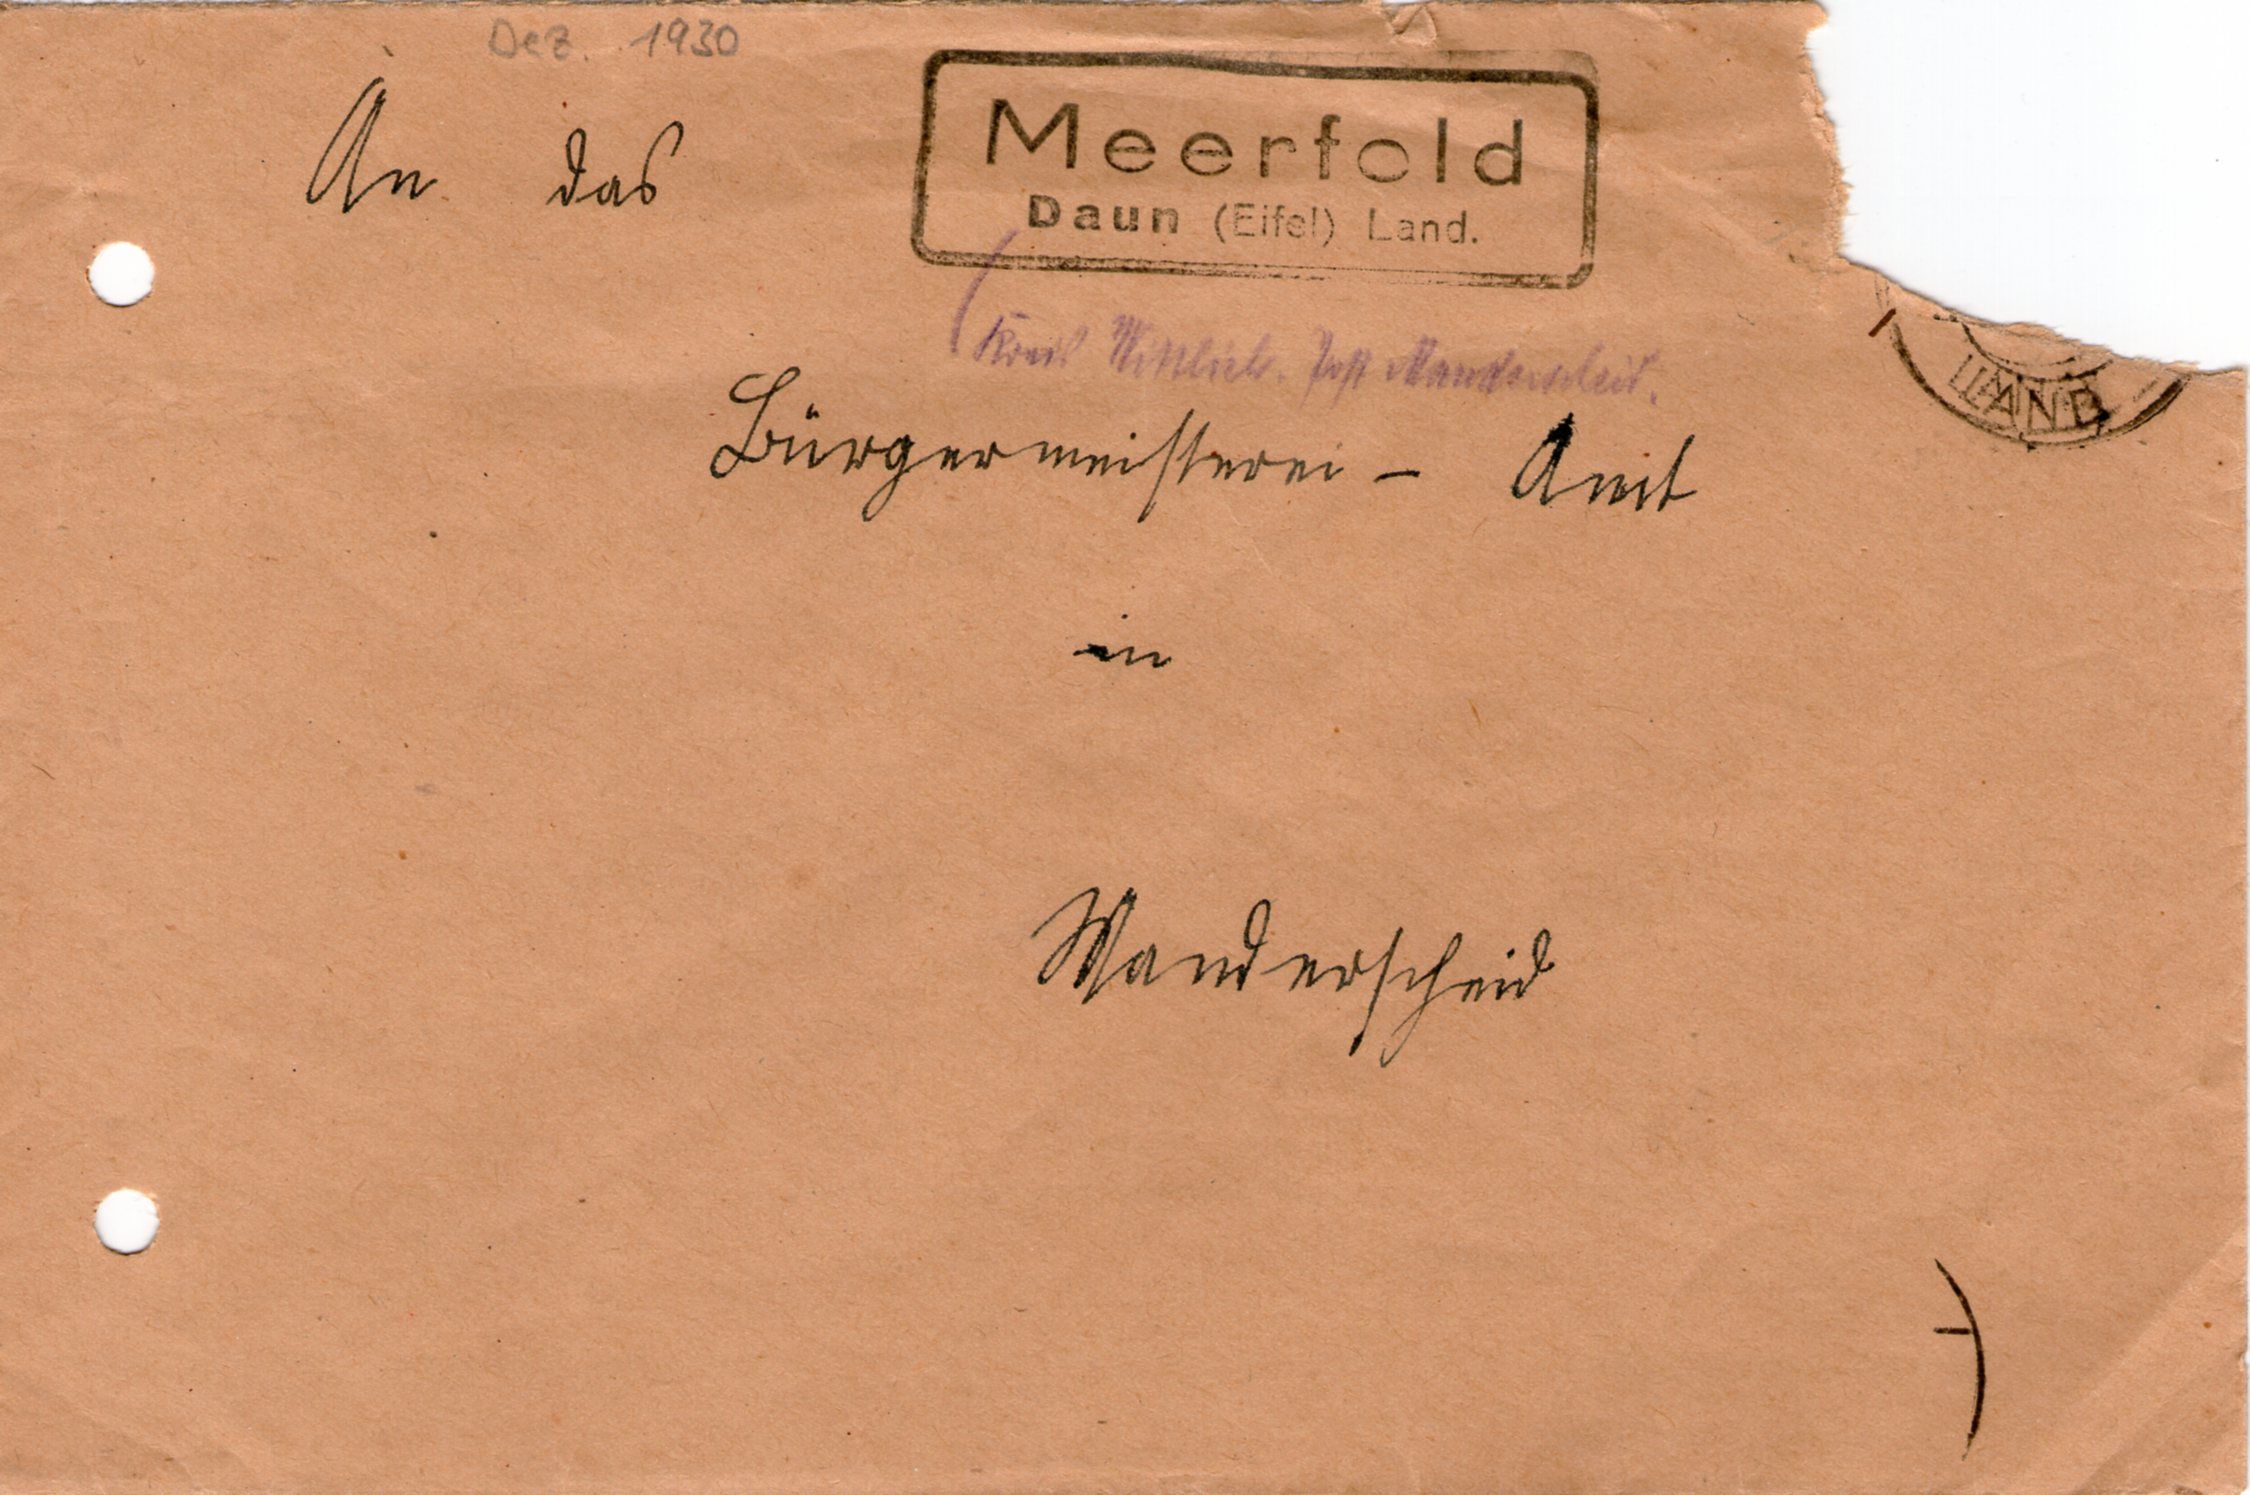 Dez. 1930
An das
Meerfeld
Daun (Eifel) Land.
Kreis Wittlich. Post Manderscheid.
LAND
Bürgermeisterei - Amt
in
Manderscheid